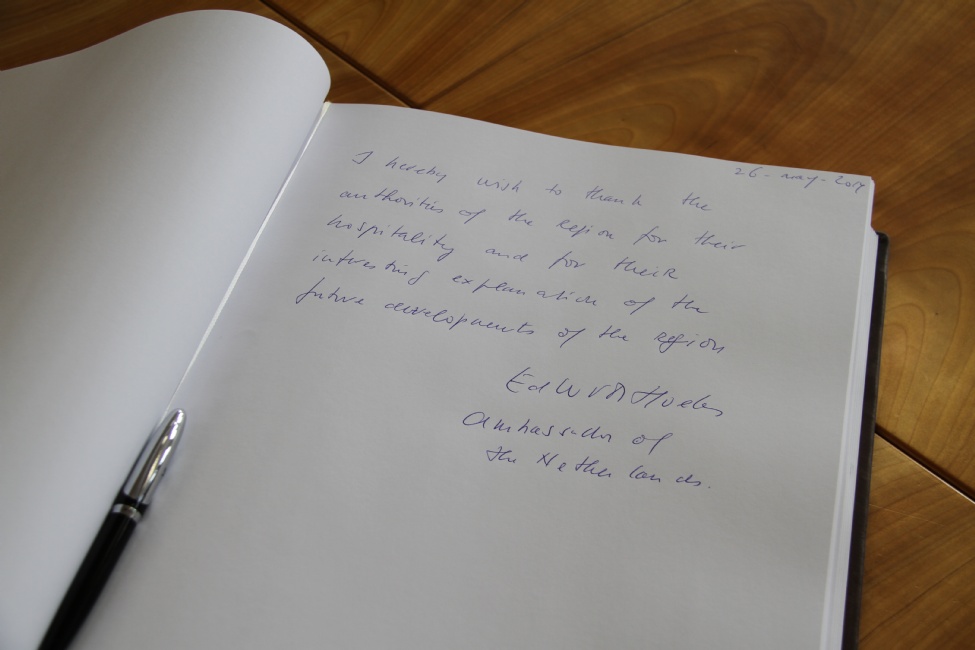 26-may-2014
I hereby wish to thank the
authorities of the region for their
hospitality and for their
interesting explanation of the
future developments of the region
Edward Hoeks
Ambassador of
the Netherlands.